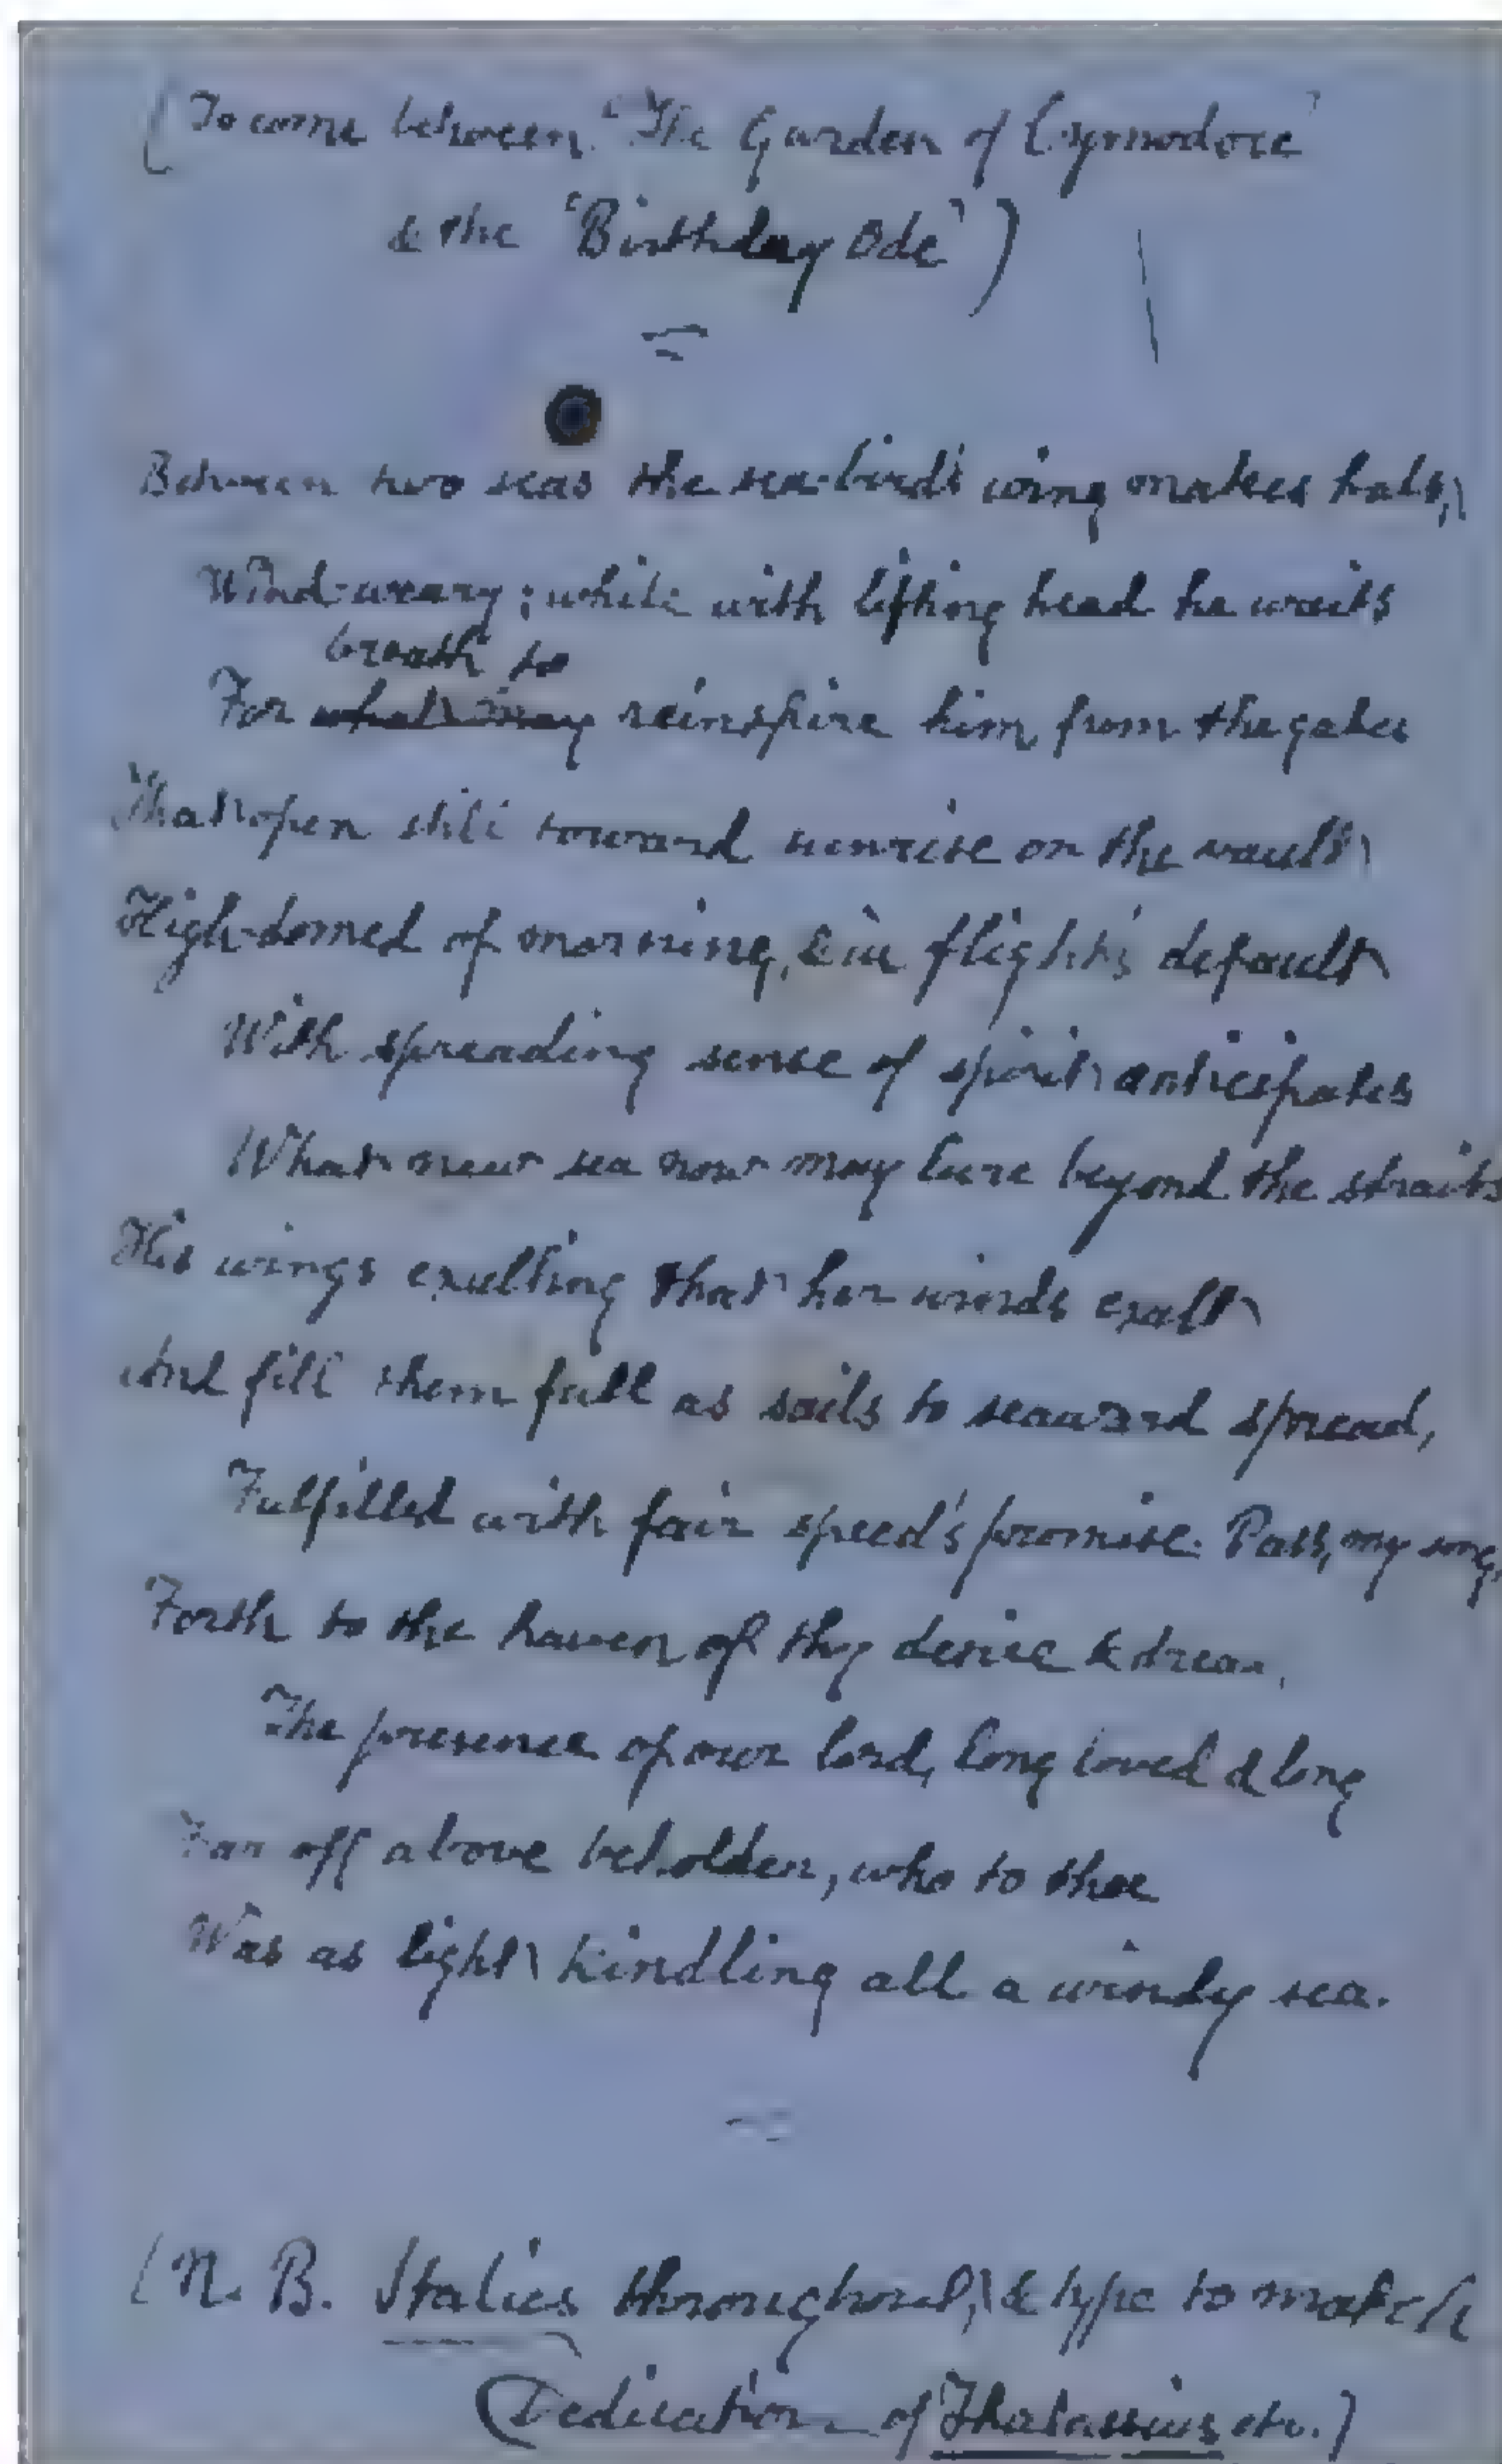 (To come between 'The Garden of Cymodoce'
& the 'Birthday Ode')
Between two seas the sea-bird's wing makes halt,
Wind-weary; while with lifting head he waits
breath to
For what may reinspire him from the gates
That open still toward sunrise on the vault
High-domed of morning, & in flight's default
With spreading sense of spirit anticipates
What new sea now may lure beyond the straits
His wings exulting that her winds exalt
And fill them full as sails to seaward spread,
Fulfilled with fair speed's promise. Pass, my song,
Forth to the haven of thy desire & dread,
The presence of our lord, long loved & long
Far off above beholden, who to thee
Was as light kindling all a windy sea.
(N. B. Italics throughout, & type to match
(Dedication of Thalassius etc.)